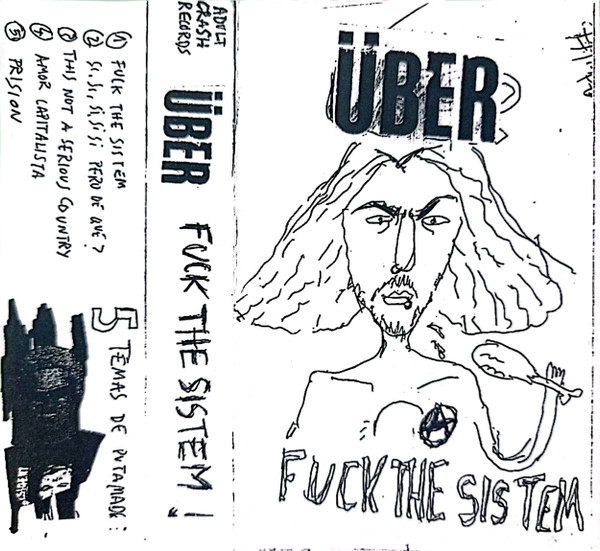 ÜBER
FUCK THE SISTEM
ADULT
CRASH
RECORDS
ÜBER FUCK THE SISTEM!
5 TEMAS DE PUTAMADRE:
① FUCK THE SISTEM
② SI, SI, SI, SI, SI PERO DE QUE?
③ THIS NOT A SERIOUS COUNTRY
④ AMOR CAPITALISTA
⑤ PRISION